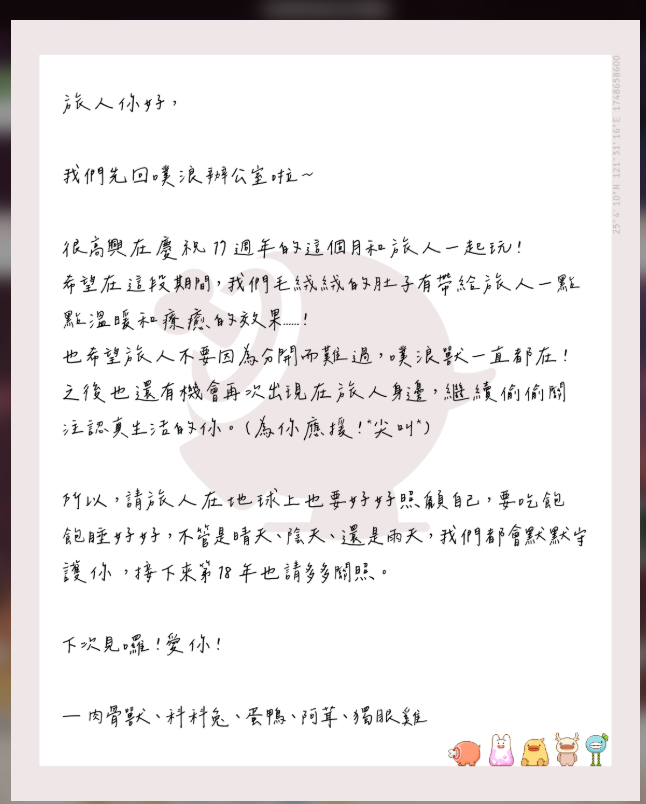 旅人你好，
我們先回噗浪辦公室啦～
很高興在慶祝 17 週年的這個月和旅人一起玩！
希望在這段期間，我們毛絨絨的肚子有帶給旅人一點
點溫暖和療癒的效果......！
也希望旅人不要因為分開而難過，噗浪獸一直都在！
之後也還有機會再次出現在旅人身邊，繼續偷偷關
注認真生活的你。（為你應援！*尖叫*）
所以，請旅人在地球上也要好好照顧自己，要吃飽
飽睡好好，不管是晴天、陰天、還是雨天，我們都會默默守
護你，接下來第 18 年也請多多關照。
下次見囉！愛你！
— 肉骨獸、科科兔、蛋鴨、阿茸、獨眼雞
25°4'10"N 121°31'16"E 1748658600